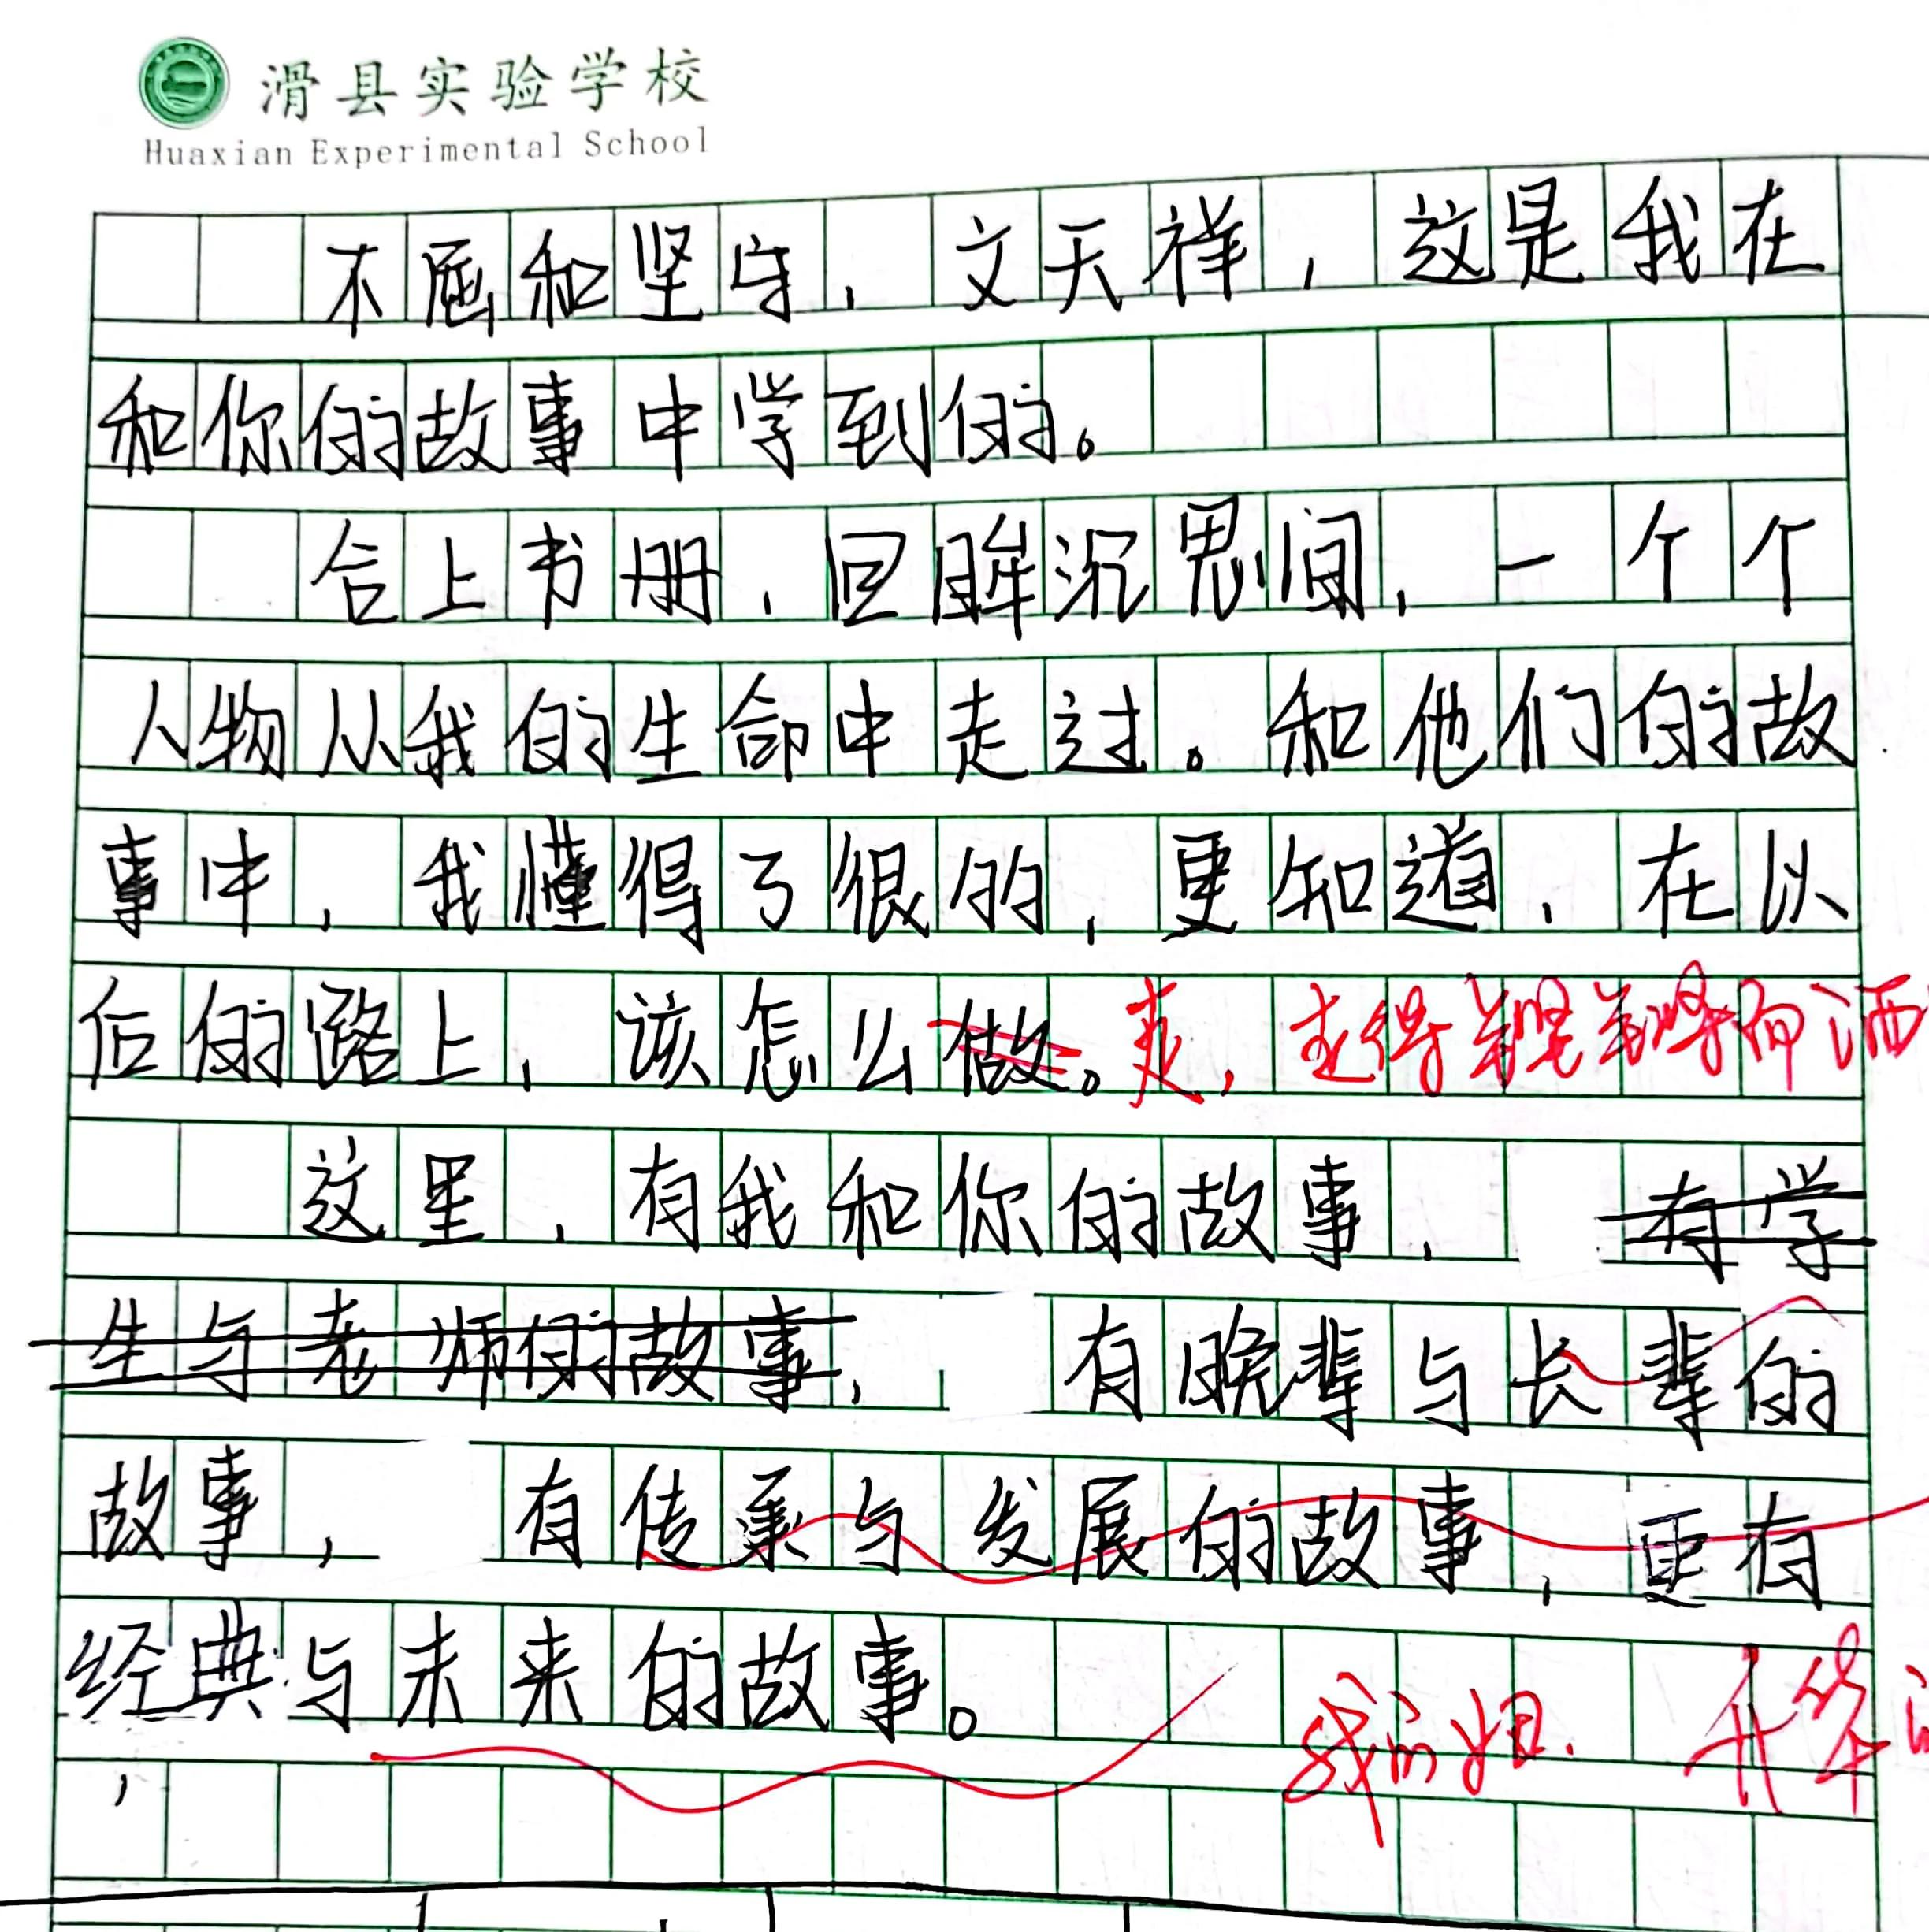 滑县实验学校
Huaxian Experimental School
不屈和坚守,文天祥,这是我在
和你的故事中学到的。
合上书册,回眸沉思间,一个个
人物从我的生命中走过。和他们的故
事中,我懂得了很的,更知道,在以
后的路上,该怎么做。走,走得
这里,有我和你的故事,有学
生与老师的故事,有晚辈与长辈的
故事,有传承与发展的故事,更有
经典与未来的故事。
升华